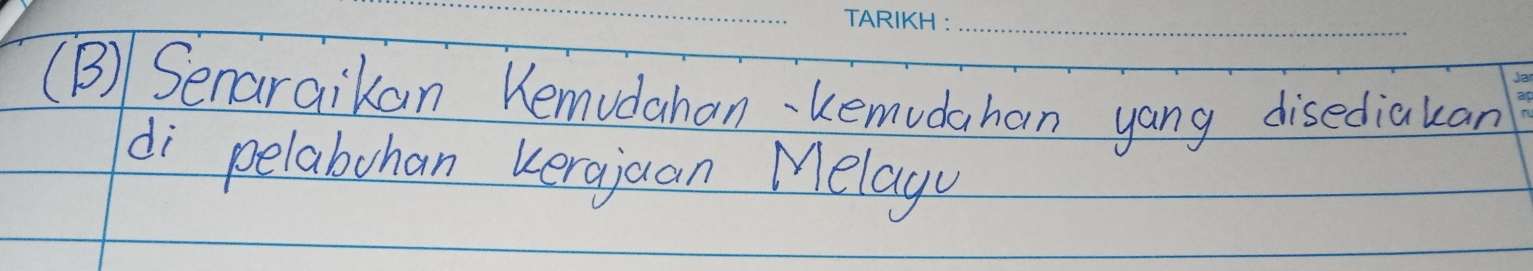 TARIKH :
(B) Senaraikan Kemudahan-kemudahan yang disediakan
di pelabuhan kerajaan Melayu